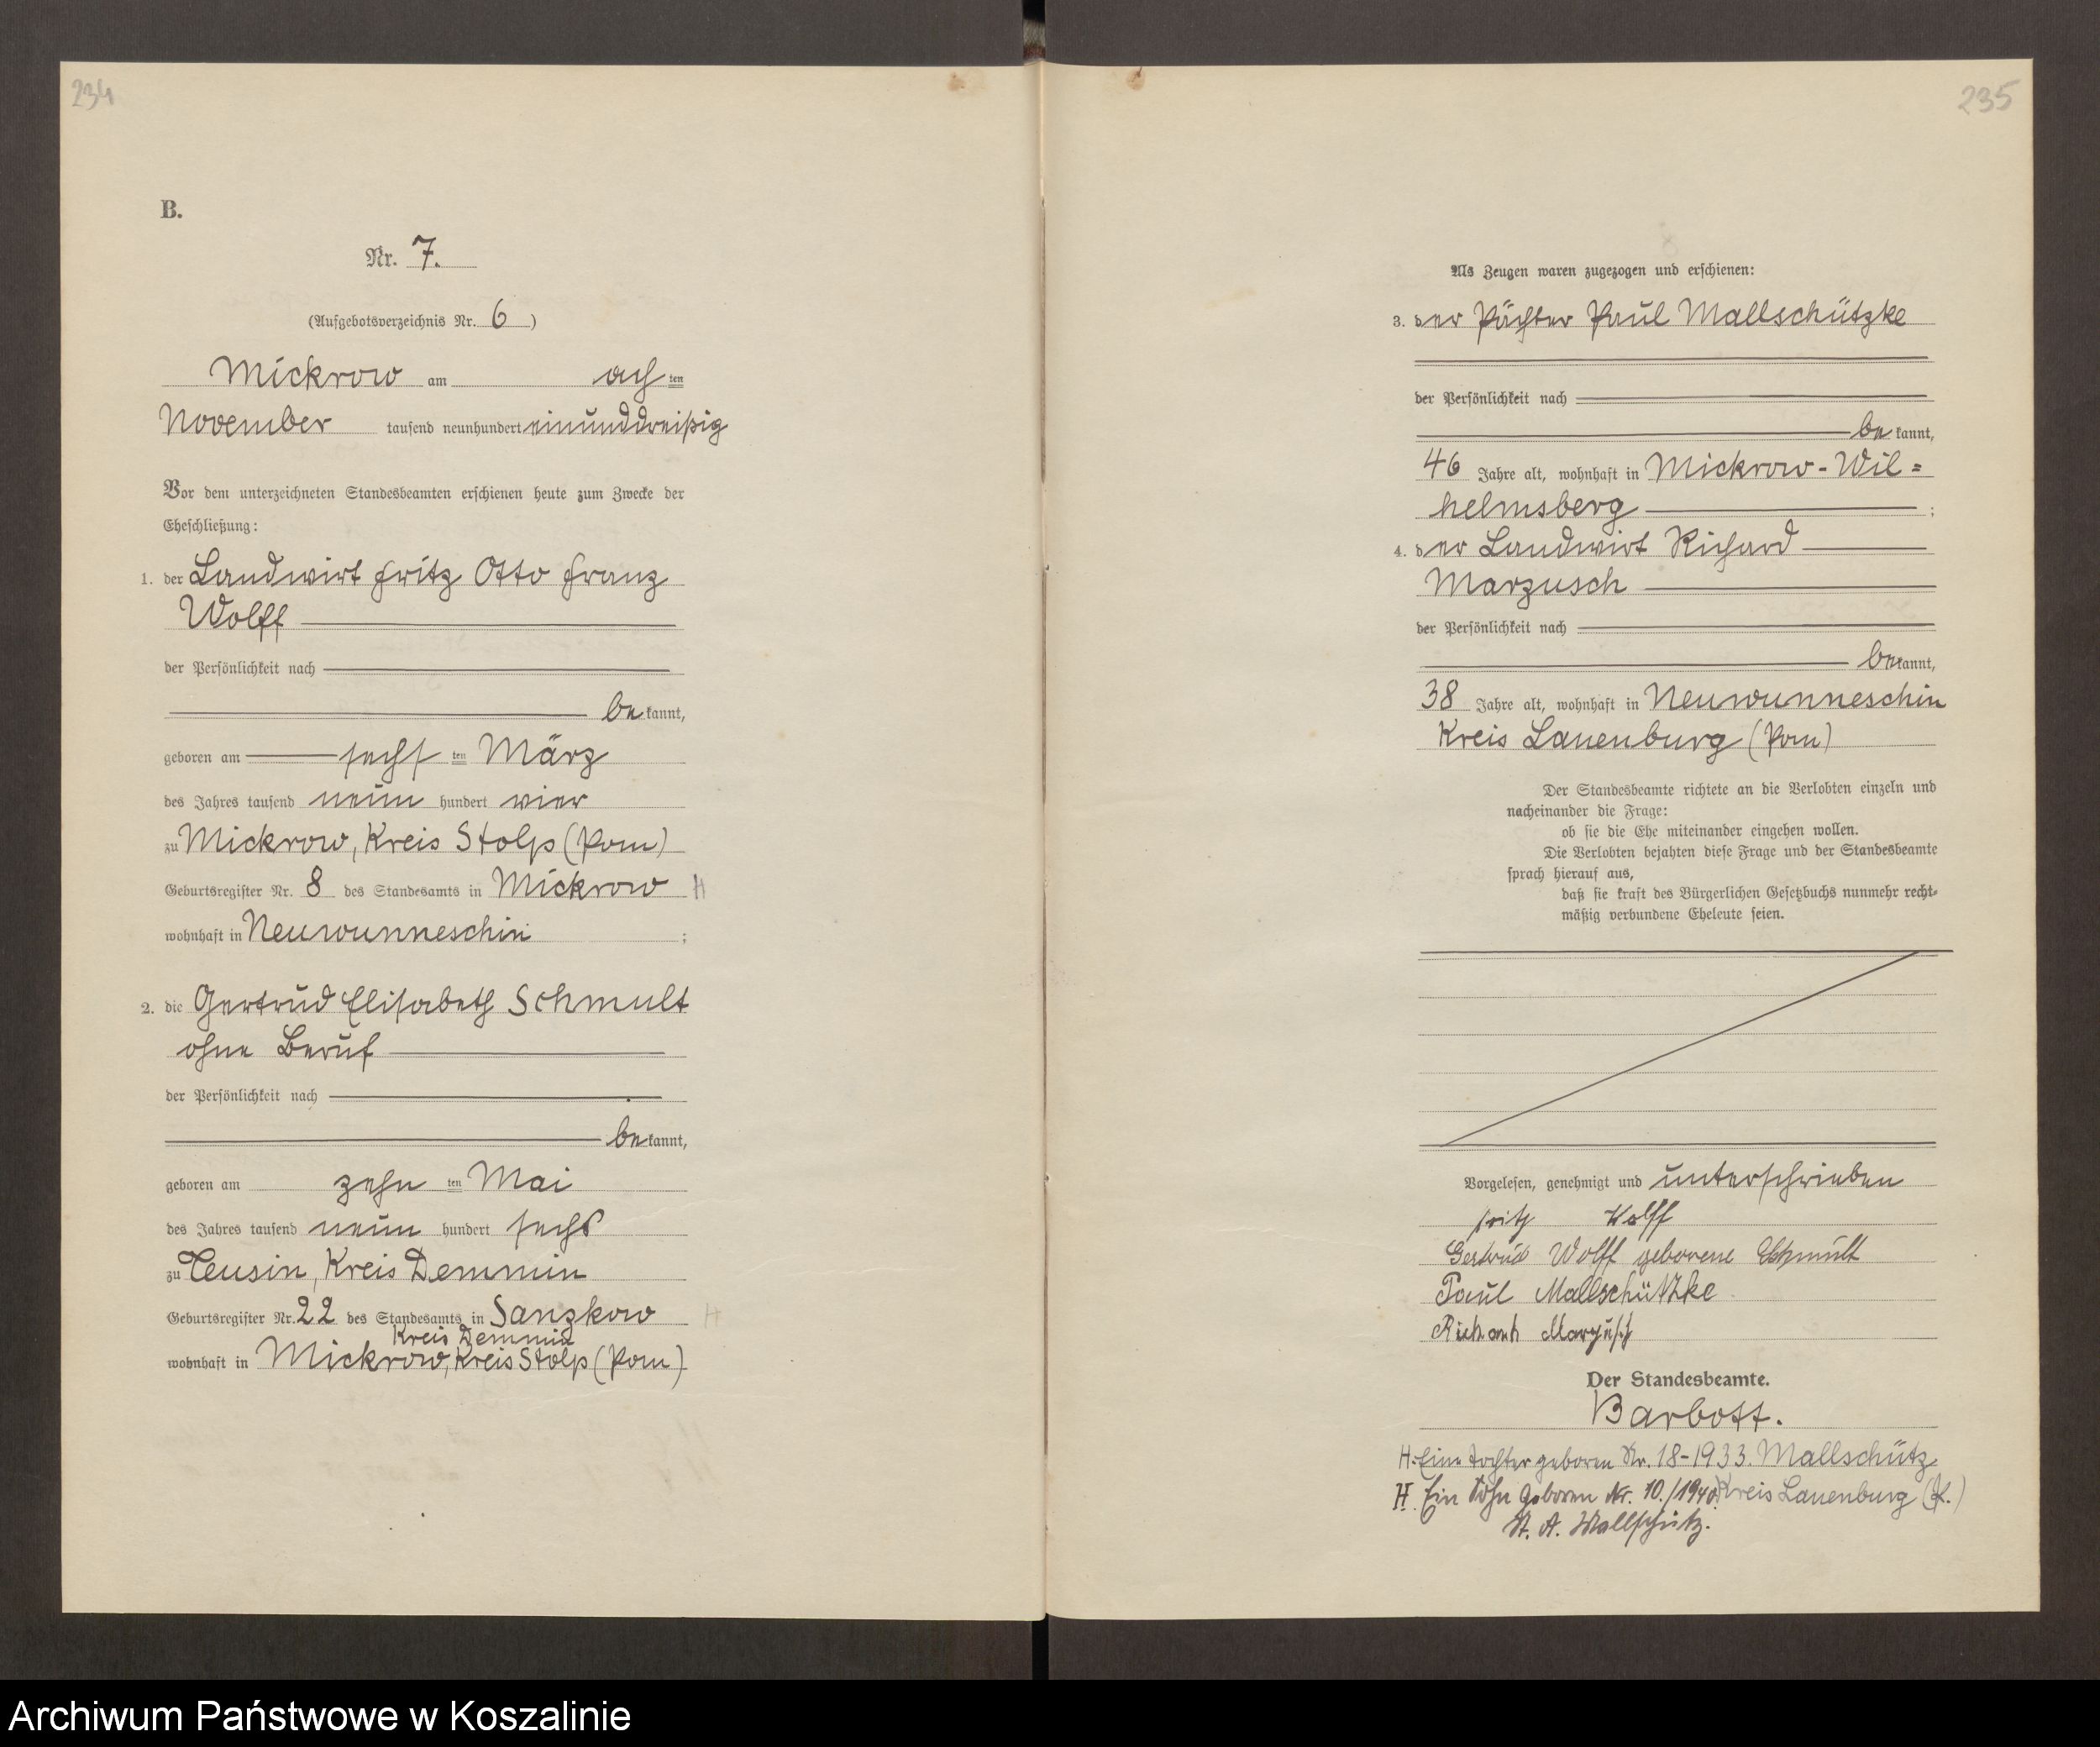 234
B.
Nr. 7.
(Aufgebotsverzeichnis Nr. 6)
Mickrow am acht ten
November tausend neunhundert einunddreißig
Vor dem unterzeichneten Standesbeamten erschienen heute zum Zwecke der
Eheschließung:
1. der Landwirt Fritz Otto Franz
Wolff
der Persönlichkeit nach
be kannt,
geboren am sechs ten März
des Jahres tausend neun hundert vier
zu Mickrow, Kreis Stolp (Pom)
Geburtsregister Nr. 8 des Standesamts in Mickrow H
wohnhaft in Neuwunneschin ;
2. die Gertrud Elisabeth Schmult
ohne Beruf
der Persönlichkeit nach
be kannt,
geboren am zehn ten Mai
des Jahres tausend neun hundert sechs
zu Teusin, Kreis Demmin
Geburtsregister Nr. 22 des Standesamts in Sanzkow H
Kreis Demmin
wohnhaft in Mickrow, Kreis Stolp (Pom)
235
Als Zeugen waren zugezogen und erschienen:
3. der Pächter Paul Mallschützke
der Persönlichkeit nach
be kannt,
46 Jahre alt, wohnhaft in Mickrow-Wil=
helmsberg ;
4. der Landwirt Richard
Marzusch
der Persönlichkeit nach
be kannt,
38 Jahre alt, wohnhaft in Neuwunneschin
Kreis Lauenburg (Pom)
Der Standesbeamte richtete an die Verlobten einzeln und
nacheinander die Frage:
ob sie die Ehe miteinander eingehen wollen.
Die Verlobten bejahten diese Frage und der Standesbeamte
sprach hierauf aus,
daß sie kraft des Bürgerlichen Gesetzbuchs nunmehr recht=
mäßig verbundene Eheleute seien.
Vorgelesen, genehmigt und unterschrieben
Fritz Wolff
Gertrud Wolff geborene Schmult
Paul Mallschützke
Richard Marzusch
Der Standesbeamte.
Barbott.
H. Eine Tochter geboren Nr. 18-1933. Mallschütz
Kreis Lauenburg (P.)
H. Ein Sohn geboren Nr. 10./1940.
St. A. Mallschütz.
Archiwum Państwowe w Koszalinie